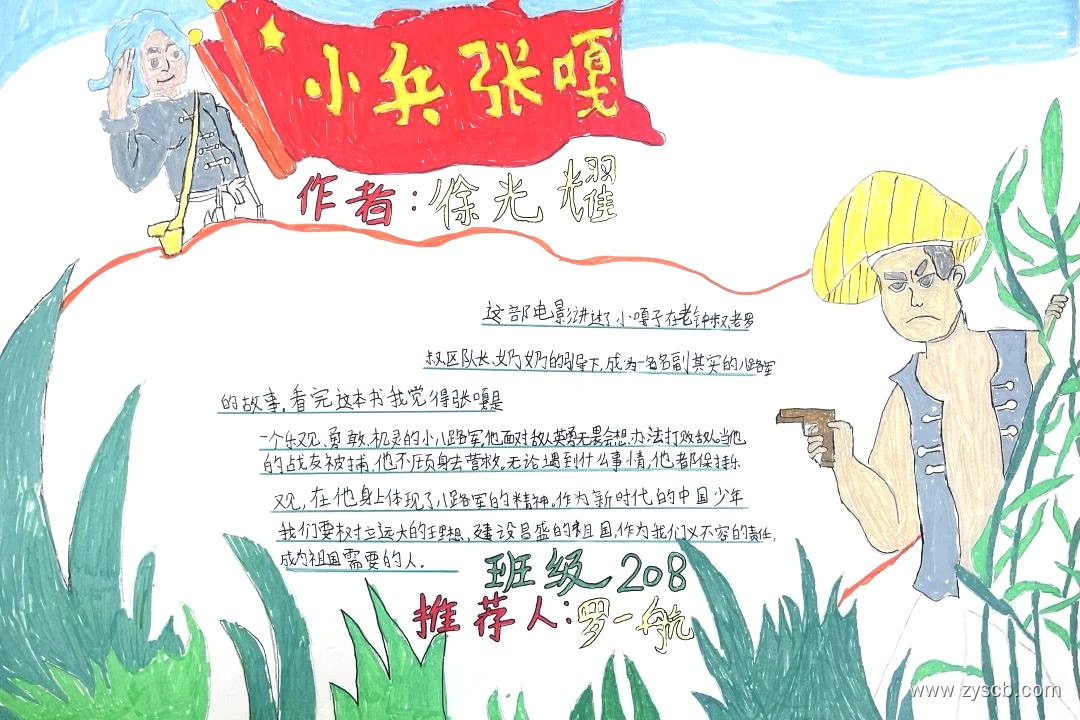 小兵张嘎
作者:徐光耀
这部电影讲述了小嘎子在老钟叔、老罗
叔、区队长、奶奶的引导下,成为一名名副其实的八路军
的故事。看完这本书我觉得张嘎是
一个乐观、勇敢、机灵的小八路军,他面对敌人英勇无畏会想办法打败敌人,当他
的战友被捕,他不顾身去营救。无论遇到什么事情,他都保持乐
观,在他身上体现了八路军的精神。作为新时代的中国少年
我们要树立远大的理想、建设昌盛的祖国,作为我们义不容的责任,
成为祖国需要的人.
班级208
推荐人:罗一航
www.zyscb.com